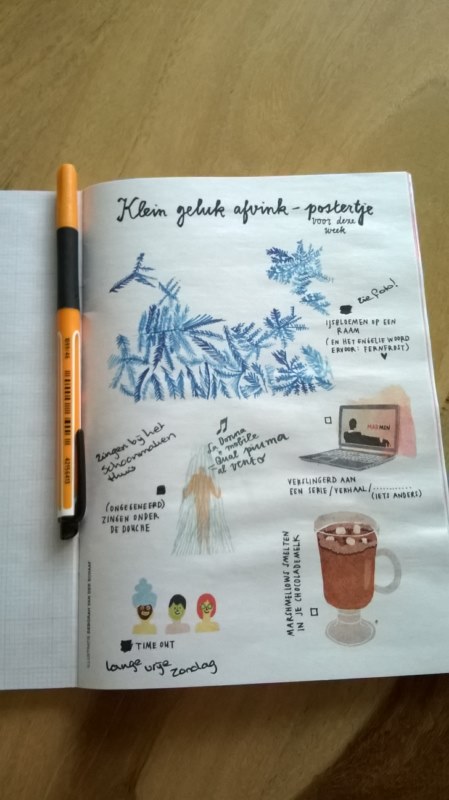 Klein geluk afvink - postertje
voor deze
week
zie foto!
IJSBLOEMEN OP EEN
RAAM
(EN HET ENGELSE WOORD
ERVOOR: FERNFROST)
zingen bij het
schoonmaken
thuis
La Donna
è mobile
Qual piuma
al vento
(ONGEREMEERD)
ZINGEN ONDER
DE DOUCHE
MADMEN
VERSLINGERD AAN
EEN SERIE/VERHAAL/...........
(IETS ANDERS)
MARSHMELLOWS SMELTEN
IN JE CHOCOLADEMELK
TIME OUT
lange vrije zondag